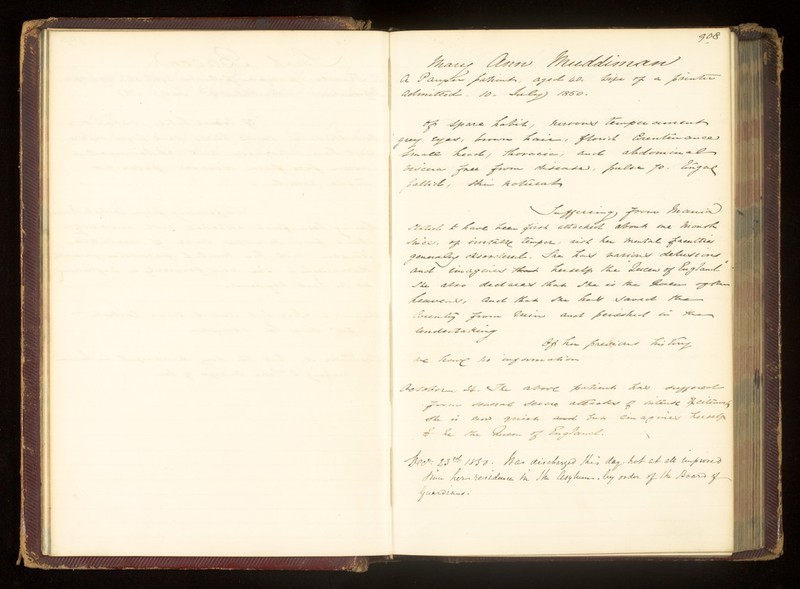 908
Mary Ann Muddiman
A Pauper patient, aged 40. Wife of a printer
Admitted 10. July 1850.
Of spare habit, nervous temperament
grey eyes, brown hair, florid Countenance
Small head, thoracic, and abdominal
viscera free from disease, pulse 70. Tongue
pallid, skin natural
Suffering from Mania
Stated to have been first attacked about one month
since. of irritable temper, with her mental faculties
generally disordered. She has various delusions
and imagines herself the Queen of England"
She also declares that she is the Queen of the
heavens, and that she has saved the
Country from ruin and perished in the
Undertaking
Of her previous history
we have no information
October. 24. The above patient has suffered
from several severe attacks of intense Excitement
She is now quiet and but imagines herself
to be the Queen of England.
Novr. 23rd. 1850. Was discharged this day, not at all improved
since her residence in the Asylum, by order of the Board of
Guardians.